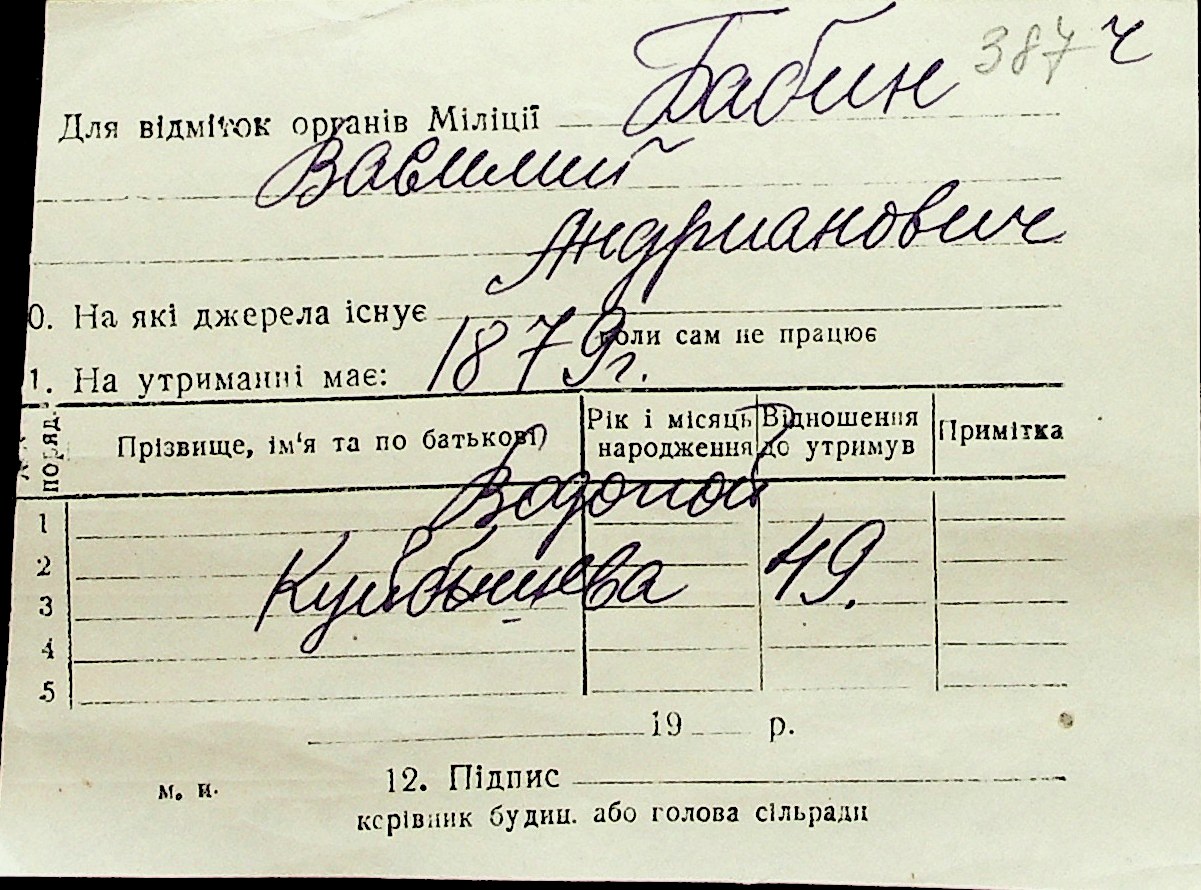 387 ч
Для відміток органів Міліції Бабин
Василий
Андрианович
0. На які джерела існує
коли сам не працює
1. На утриманні має: 1879 г.
№№ поряд.
Прізвище, ім'я та по батькові
Рік і місяць народження
Відношення до утримув
Примітка
Водопой
1
2
Куйбышева 49.
3
4
5
19 р.
12. Підпис
м. п.
керівник будин. або голова сільради